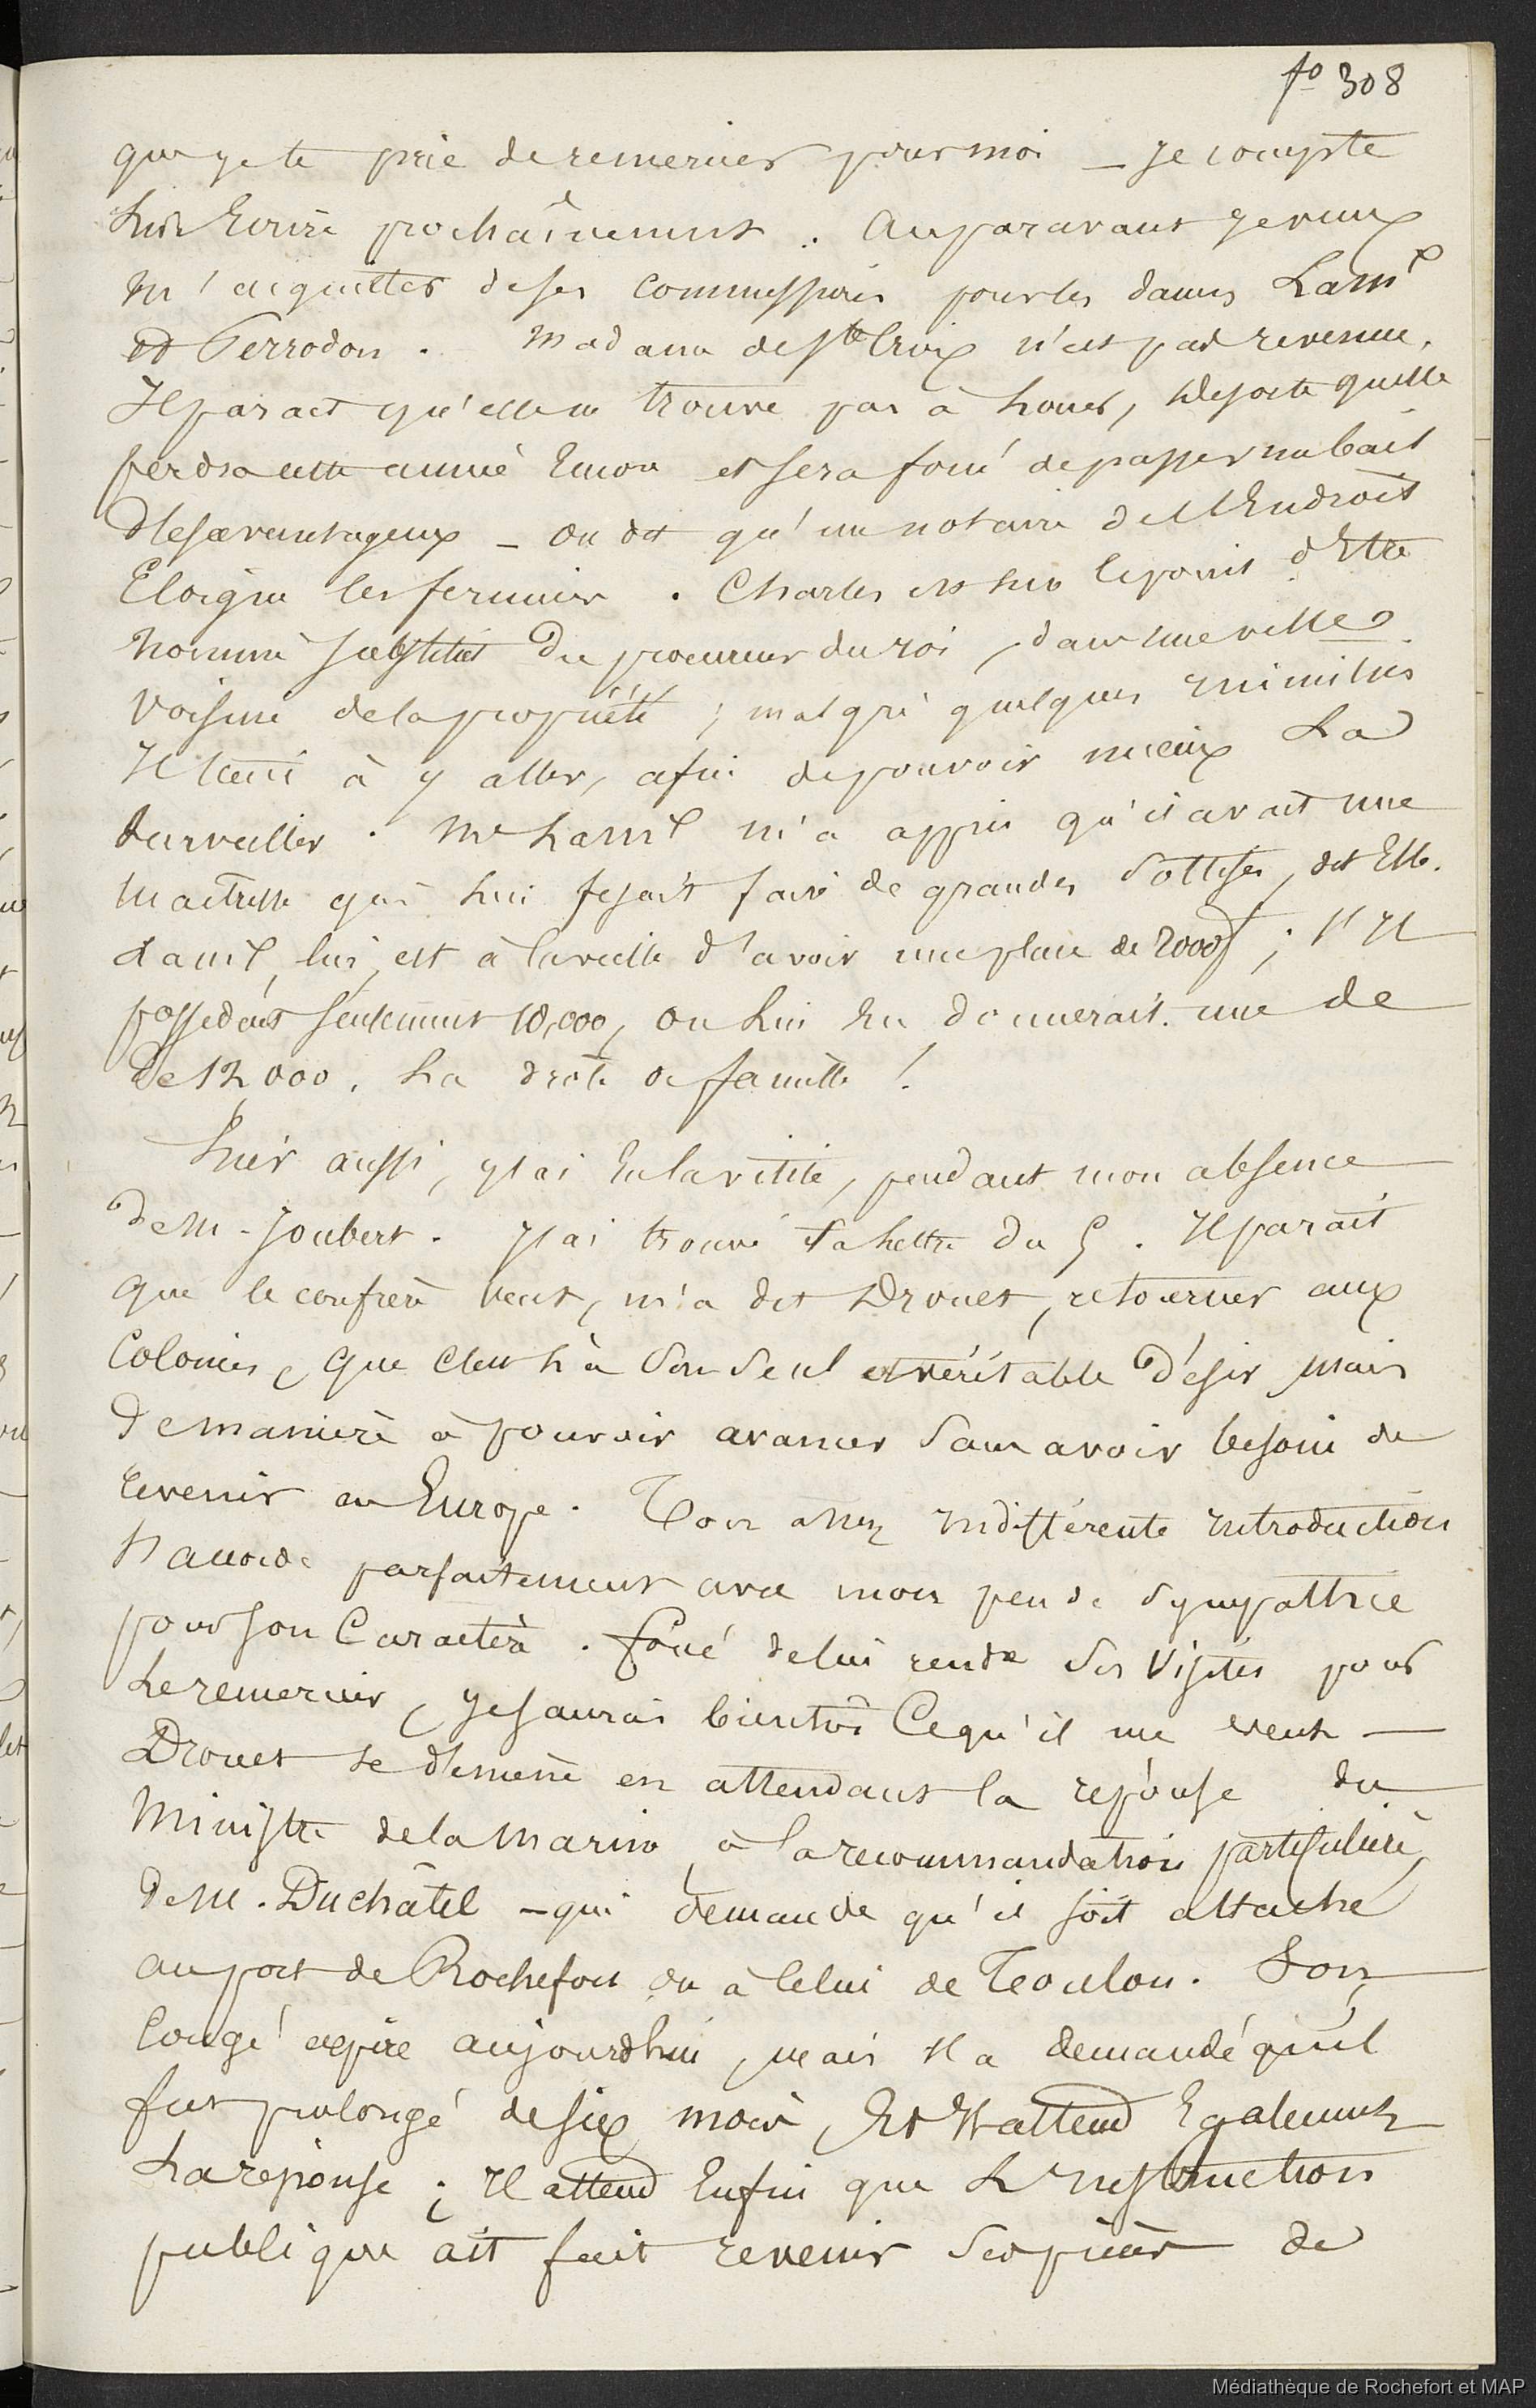 fo 308
que je te prie de remercier pour moi — Je compte
lui Ecrire prochaînement. Auparavant je veux
m'acquitter de ses commissions pour les dames Laml
et Perrodon. Madame de Ste Croix n'est pas revenue.
Il parait qu'elle ne trouve pas à louer, de sorte qu'elle
perdra cette année Encore et sera forcé de passer un bail
désavantageux — on dit qu'un notaire de l'Endroit
Eloigne les fermiers. Charles est sur le point d'Etre
nommé substitut du procureur du roi, dans une ville
voisine de la propriété; malgré quelques inimitiés
Il tient à y aller, afin de pouvoir mieux La
surveiller. Me Laml m'a appris qu'il avait une
maitresse qui lui fesait faire de grandes sottises, dit Elle.
Laml, lui, est à la veille d'avoir une place de 2000f; s'Il
possedait seulement 10,000, on lui En donnerait une de
de 12,000. La drôle de famille!
hier aussi, j'ai Eu la visite, pendant mon absence
de M. Joubert. J'ai trouvé ta lettre du 5. Il parait
que le confrère veut, m'a dit Drouet, retourner aux
Colonies, que c'est là son seul et véritable désir mais
de manière à pouvoir avancer sans avoir besoin de
revenir en Europe. Ton assez indifférente introduction
s'accorde parfaitement avec mon peu de sympathie
pour son Caractère. forcé de lui rendre ses visites pour
Le remercier, je saurai bientôt Ce qu'il me veut —
Drouet se démène en attendant la reponse du
Ministre de la marine, à la recommandation particulière
de M. Duchâtel — qui demande qu'il soit attaché
au port de Rochefort ou à Celui de Toulon. Son
Congé expire aujourdhui, mais Il a demandé qu'il
fut prolongé de six mois, Et Il attend Egalement
La réponse; Il attend Enfin que L'Instruction
publique ait fait revenir ses pièces de